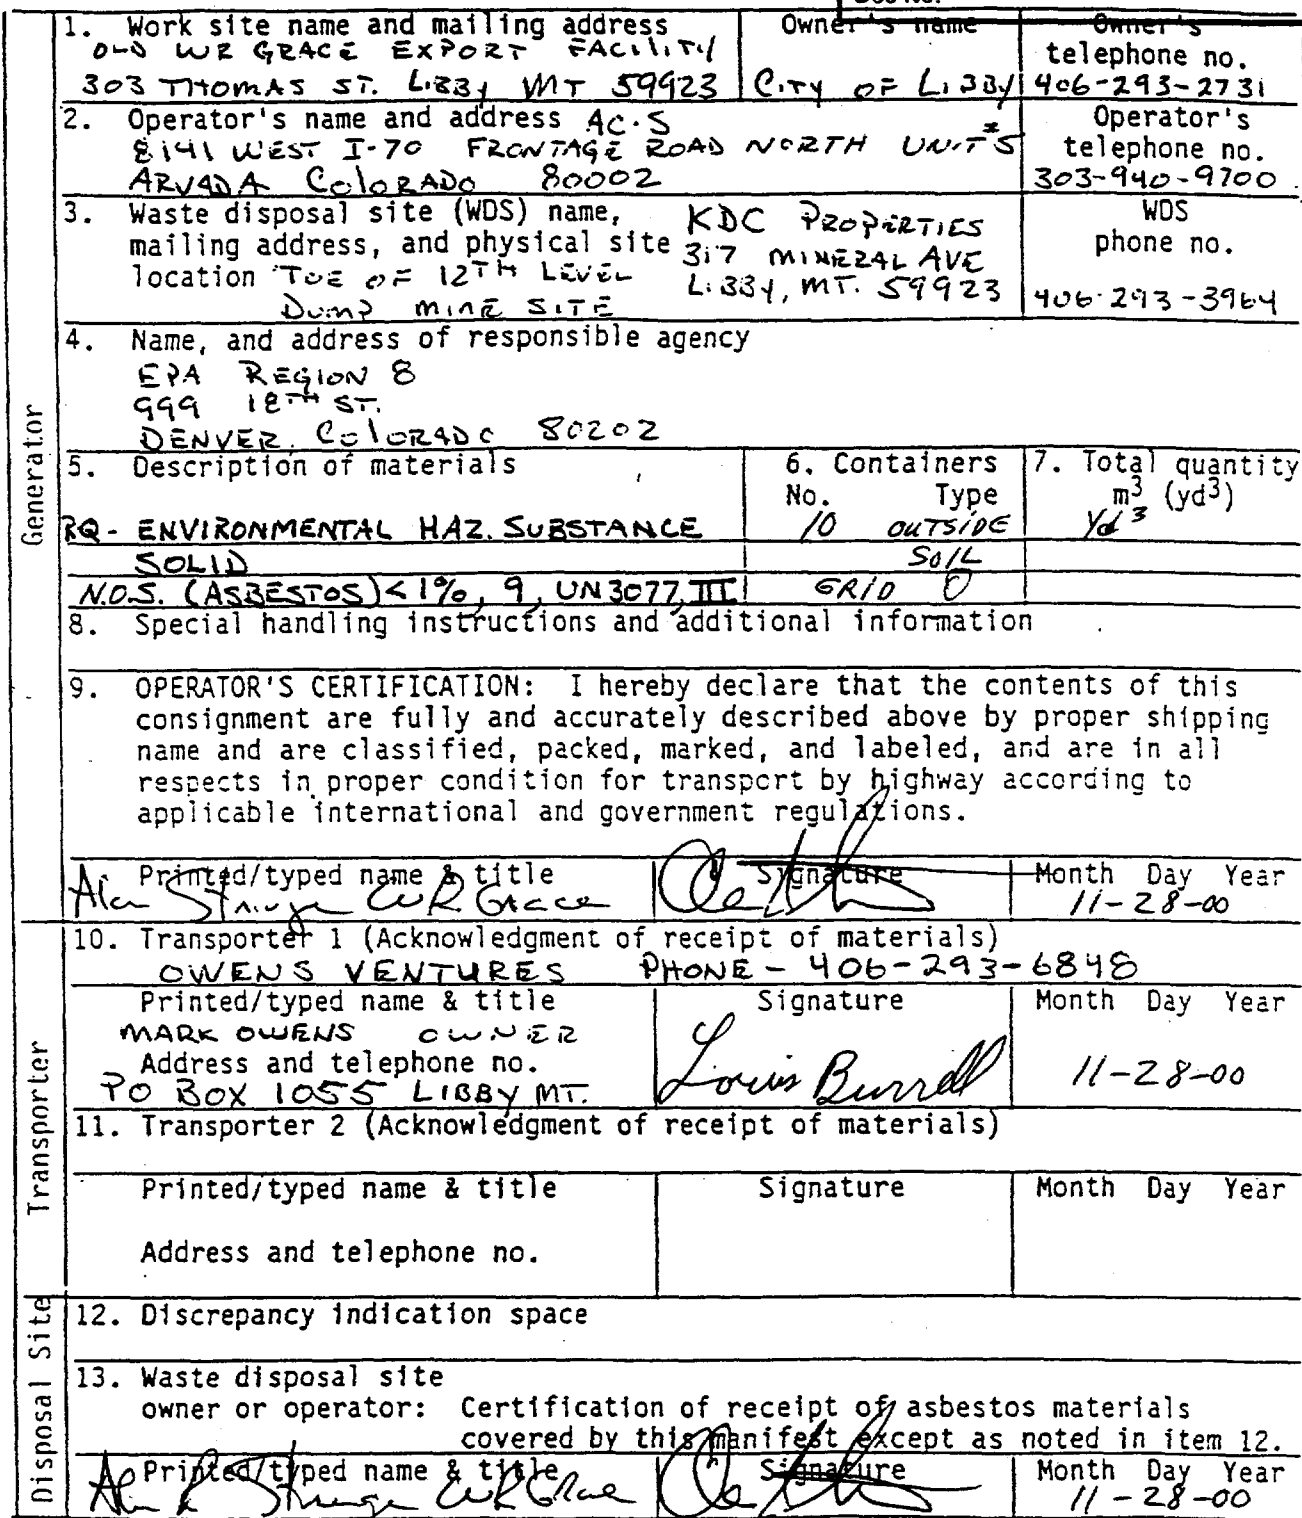 1. Work site name and mailing address
OLD WR GRACE EXPORT FACILITY
303 THOMAS ST. LIBBY MT 59923
Owner's name
CITY OF LIBBY
Owner's
telephone no.
406-293-2731
2. Operator's name and address AC.S
8141 WEST I-70 FRONTAGE ROAD NORTH UNIT #5
ARVADA COLORADO 80002
Operator's
telephone no.
303-940-9700
3. Waste disposal site (WDS) name,
mailing address, and physical site
location TOE OF 12TH LEVEL
DUMP MINE SITE
KDC PROPERTIES
317 MINERAL AVE
LIBBY, MT. 59923
WDS
phone no.
406-293-3964
4. Name, and address of responsible agency
EPA REGION 8
999 18TH ST.
DENVER, COLORADO 80202
Generator
5. Description of materials
6. Containers
No. Type
7. Total quantity
m3 (yd3)
RQ - ENVIRONMENTAL HAZ. SUBSTANCE
10 OUTSIDE
Yd3
SOLID
SOIL
N.O.S. (ASBESTOS) < 1%, 9, UN3077, III
GRID O
8. Special handling instructions and additional information
9. OPERATOR'S CERTIFICATION: I hereby declare that the contents of this
consignment are fully and accurately described above by proper shipping
name and are classified, packed, marked, and labeled, and are in all
respects in proper condition for transport by highway according to
applicable international and government regulations.
Printed/typed name & title
WR Grace
Signature
Month Day Year
11-28-00
Transporter
10. Transporter 1 (Acknowledgment of receipt of materials)
OWENS VENTURES PHONE - 406-293-6848
Printed/typed name & title
MARK OWENS OWNER
Address and telephone no.
PO BOX 1055 LIBBY MT.
Signature
Louis Burrell
Month Day Year
11-28-00
11. Transporter 2 (Acknowledgment of receipt of materials)
Printed/typed name & title
Signature
Month Day Year
Address and telephone no.
Disposal Site
12. Discrepancy indication space
13. Waste disposal site
owner or operator: Certification of receipt of asbestos materials
covered by this manifest except as noted in item 12.
Printed/typed name & title
WR Grace
Signature
Month Day Year
11-28-00